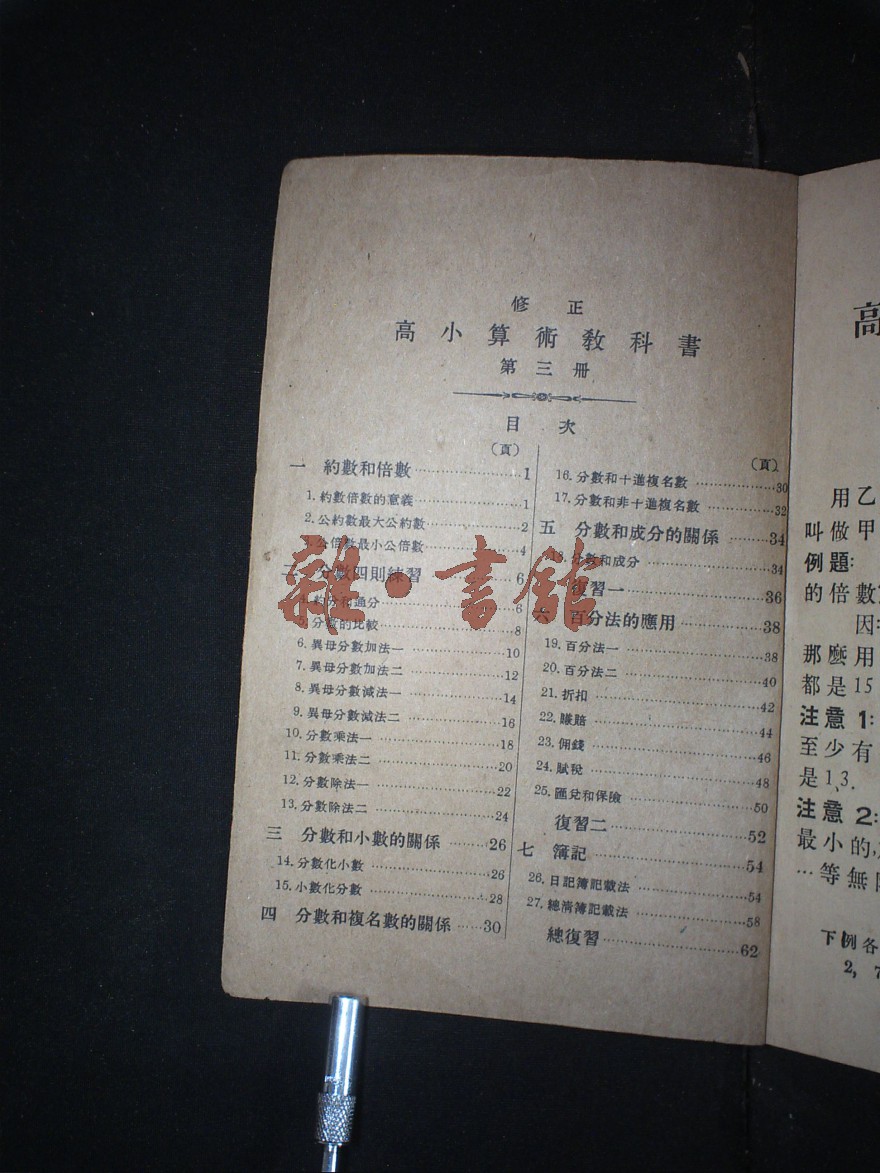 修正
高小算術教科書
第三冊
目次
(頁)
一 約數和倍數……1
1. 約數倍數的意義……1
2. 公約數最大公約數……2
3. 公倍數最小公倍數……4
二 分數四則練習……6
4. 約分和通分……6
5. 分數的比較……8
6. 異母分數加法一……10
7. 異母分數加法二……12
8. 異母分數減法一……14
9. 異母分數減法二……16
10. 分數乘法一……18
11. 分數乘法二……20
12. 分數除法一……22
13. 分數除法二……24
三 分數和小數的關係……26
14. 分數化小數……26
15. 小數化分數……28
四 分數和複名數的關係……30
(頁)
16. 分數和十進複名數……30
17. 分數和非十進複名數……32
五 分數和成分的關係……34
18. 小數和成分……34
復習一……36
六 百分法的應用……38
19. 百分法一……38
20. 百分法二……40
21. 折扣……42
22. 賺賠……44
23. 佣錢……46
24. 賦稅……48
25. 匯兌和保險……50
復習二……52
七 簿記……54
26. 日記簿記載法……54
27. 總清簿記載法……58
總復習……62
雜·書館
高
用乙
叫做甲
例題:
的倍數
因:
那麼用
都是15
注意1:
至少有
是1,3.
注意2:
最小的,
…等無
下例各
2, 7